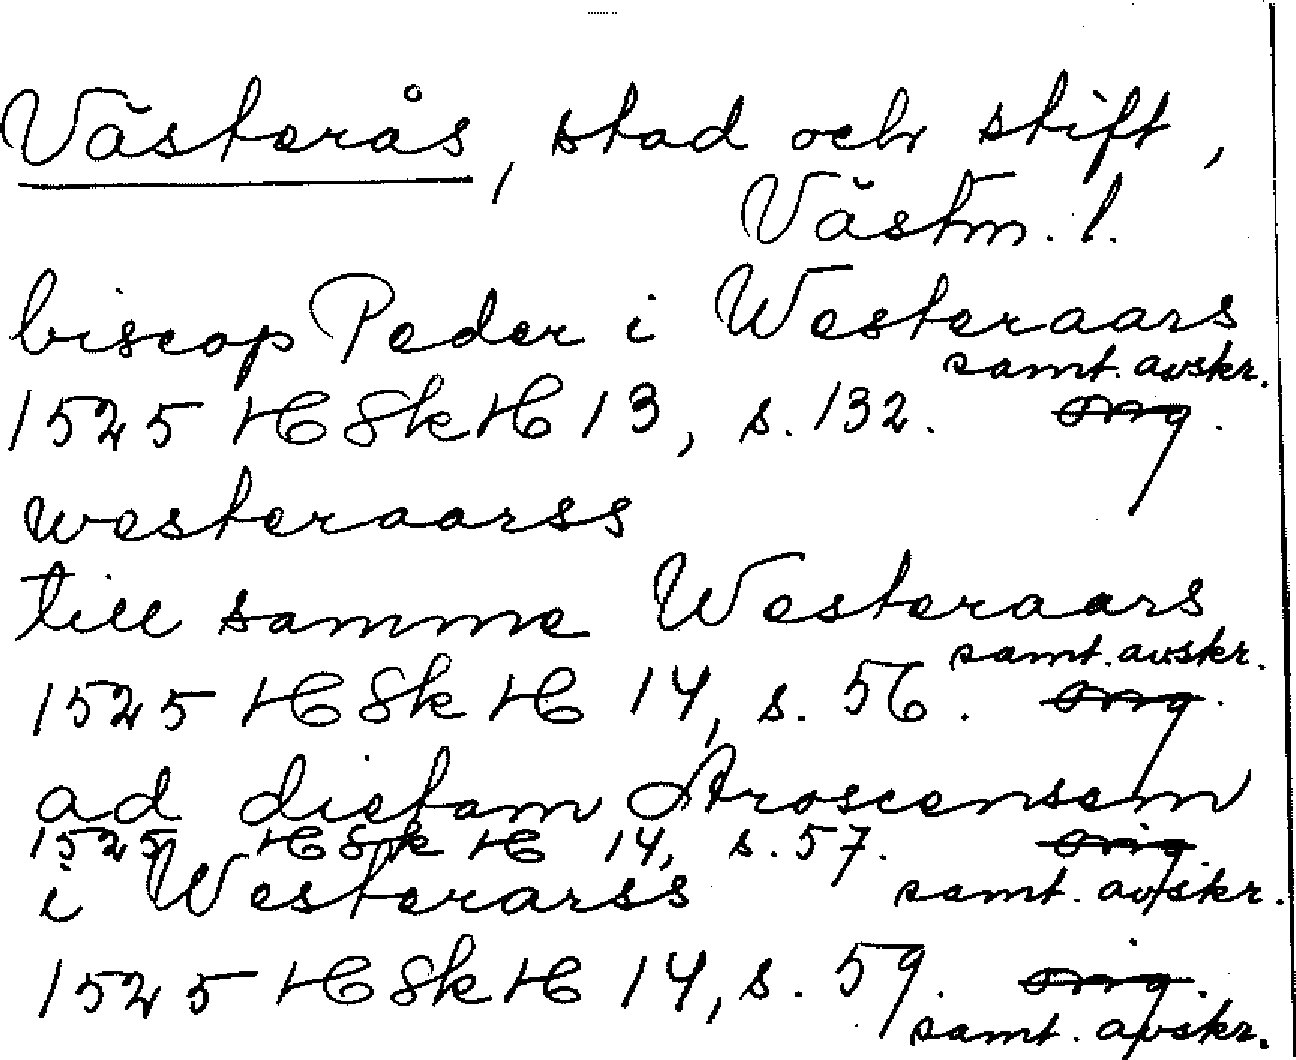 Västerås, stad och stift,
Västm. l.
biscop Peder i Westeraars
samt. avskr.
1525 HSkH 13, s. 132. orig.
westeraarss
till samme Westeraars
samt. avskr.
1525 HSkH 14, s. 56. orig.
ad dietam Aroscensem
1525 HSkH 14, s. 57. orig.
i Westerarss samt. avskr.
1525 HSkH 14, s. 59. orig.
samt. avskr.